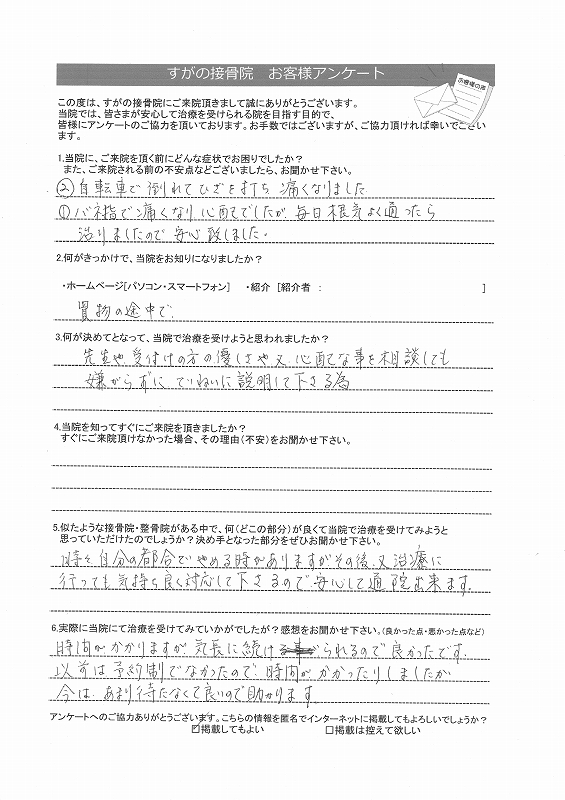 すがの接骨院　お客様アンケート
お客様の声
この度は、すがの接骨院にご来院頂きまして誠にありがとうございます。
当院では、皆さまが安心して治療を受けられる院を目指す目的で、
皆様にアンケートのご協力を頂いております。お手数ではございますが、ご協力頂ければ幸いでござい
ます。
1.当院に、ご来院を頂く前にどんな症状でお困りでしたか？
また、ご来院される前の不安点などございましたら、お聞かせ下さい。
② 自転車で倒れてひざを打ち 痛くなりました
① バネ指で痛くなり 心配でしたが 毎日根気よく通ったら
治りましたので 安心致しました。
2.何がきっかけで、当院をお知りになりましたか？
・ホームページ[パソコン・スマートフォン]　・紹介 [紹介者 :　]
買物の途中で
3.何が決めてとなって、当院で治療を受けようと思われましたか？
先生や受付けの方の優しさや又、心配な事を相談しても
嫌がらずに ていねいに説明して下さる為
4.当院を知ってすぐにご来院を頂きましたか？
すぐにご来院頂けなかった場合、その理由(不安)をお聞かせ下さい。
5.似たような接骨院・整骨院がある中で、何(どこの部分)が良くて当院で治療を受けてみようと
思っていただけたのでしょうか？決め手となった部分をぜひお聞かせ下さい。
時々 自分の都合でやめる時がありますが その後、又 治療に
行っても 気持ち良く対応して下さるので 安心して通院出来ます。
6.実際に当院にて治療を受けてみていかがでしたが？感想をお聞かせ下さい。(良かった点・悪かった点など)
時間がかかりますが 気長に続けられるので良かったです。
以前は予約制でなかったので、時間がかかったりしましたが
今は、あまり待たなくて良いので助かります
アンケートへのご協力ありがとうございます。こちらの情報を匿名でインターネットに掲載してもよろしいでしょうか？
☑掲載してもよい　□掲載は控えて欲しい